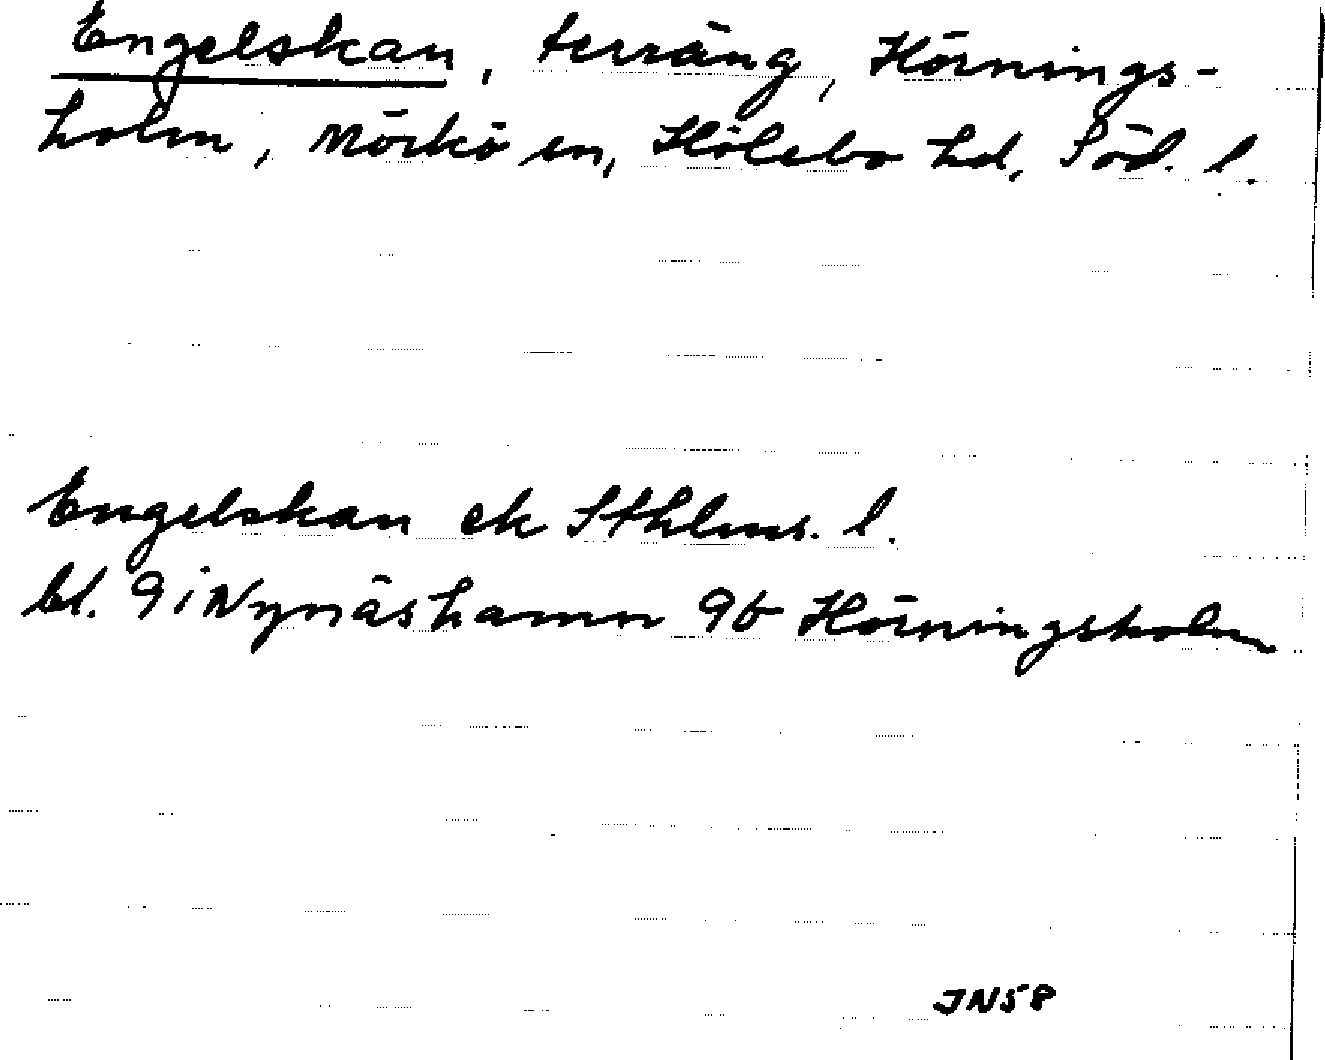 Engelskan, terräng, Hörnings-
holm, Mörkö sn, Hölebo hd, Söd. l.
Engelskan ek Sthlms. l.
bl. 9i Nynäshamn 9b Hörningsholm
JN58